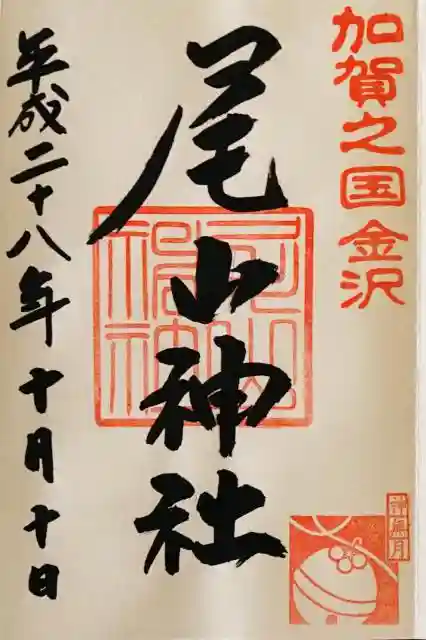 加賀之国 金沢
尾山神社
平成二十八年十月十日
神無月